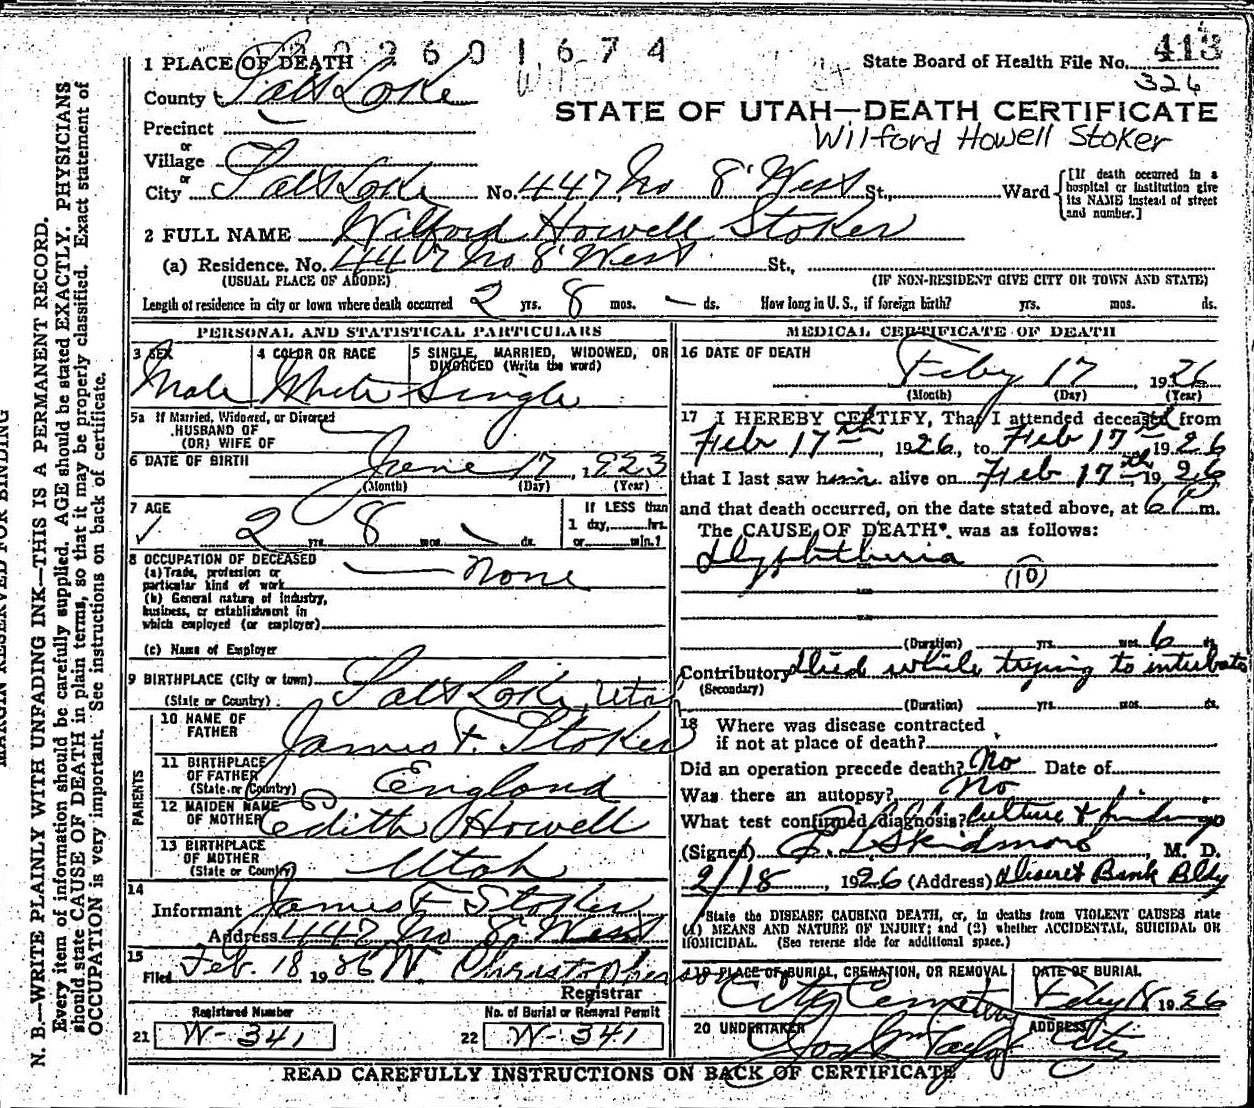 2601674
State Board of Health File No. 413
326
1 PLACE OF DEATH
County Salt Lake
STATE OF UTAH—DEATH CERTIFICATE
Wilford Howell Stoker
Precinct
or
Village
or
City Salt Lake No. 447 No 8' West St., Ward [If death occurred in a hospital or institution give its NAME instead of street and number.]
2 FULL NAME Wilford Howell Stoker
(a) Residence. No. 447 No 8' West St.,
(USUAL PLACE OF ABODE) (IF NON-RESIDENT GIVE CITY OR TOWN AND STATE)
Length of residence in city or town where death occurred 2 yrs. 8 mos. — ds. How long in U. S., if foreign birth? yrs. mos. ds.
PERSONAL AND STATISTICAL PARTICULARS
3 SEX 4 COLOR OR RACE 5 SINGLE, MARRIED, WIDOWED, OR DIVORCED (Write the word)
Male White Single
5a If Married, Widowed, or Divorced
HUSBAND OF
(OR) WIFE OF
6 DATE OF BIRTH June 17, 1923
(Month) (Day) (Year)
7 AGE If LESS than
1 day, hrs.
2 yrs. 8 mos. ds. or min.?
8 OCCUPATION OF DECEASED
(a) Trade, profession or
particular kind of work None
(b) General nature of industry,
business, or establishment in
which employed (or employer)
(c) Name of Employer
9 BIRTHPLACE (City or town) Salt Lake, Utah
(State or Country)
PARENTS
10 NAME OF
FATHER James F. Stoker
11 BIRTHPLACE
OF FATHER
(State or Country) England
12 MAIDEN NAME
OF MOTHER Edith Howell
13 BIRTHPLACE
OF MOTHER
(State or Country) Utah
14
Informant James F Stoker
Address 447 No 8' West
15
Filed Feb. 18 1926 W. Christopherson
Registrar
Registered Number No. of Burial or Removal Permit
21 W-341 22 W-341
MEDICAL CERTIFICATE OF DEATH
16 DATE OF DEATH
Feby 17, 1926
(Month) (Day) (Year)
17 I HEREBY CERTIFY, That I attended deceased from
Feb 17th, 1926, to Feb 17th 1926
that I last saw him alive on Feb 17th, 1926
and that death occurred, on the date stated above, at 6 P m.
The CAUSE OF DEATH* was as follows:
Dyphtheria
(10)
(Duration) yrs. mos. 6 ds.
Contributory Died while trying to intubate
(Secondary)
(Duration) yrs. mos. ds.
18 Where was disease contracted
if not at place of death?
Did an operation precede death? No Date of
Was there an autopsy? No
What test confirmed diagnosis? Culture & findings
(Signed) C. L Skidmore, M. D.
2/18, 1926 (Address) Deseret Bank Bldg
*State the DISEASE CAUSING DEATH, or, in deaths from VIOLENT CAUSES state
(1) MEANS AND NATURE OF INJURY; and (2) whether ACCIDENTAL, SUICIDAL OR
HOMICIDAL. (See reverse side for additional space.)
19 PLACE OF BURIAL, CREMATION, OR REMOVAL DATE OF BURIAL
City Cemetery Feby 18 1926
20 UNDERTAKER ADDRESS
Taylor City
READ CAREFULLY INSTRUCTIONS ON BACK OF CERTIFICATE
MARGIN RESERVED FOR BINDING
N. B.—WRITE PLAINLY WITH UNFADING INK—THIS IS A PERMANENT RECORD.
Every item of information should be carefully supplied. AGE should be stated EXACTLY. PHYSICIANS
should state CAUSE OF DEATH in plain terms, so that it may be properly classified. Exact statement of
OCCUPATION is very important. See instructions on back of certificate.